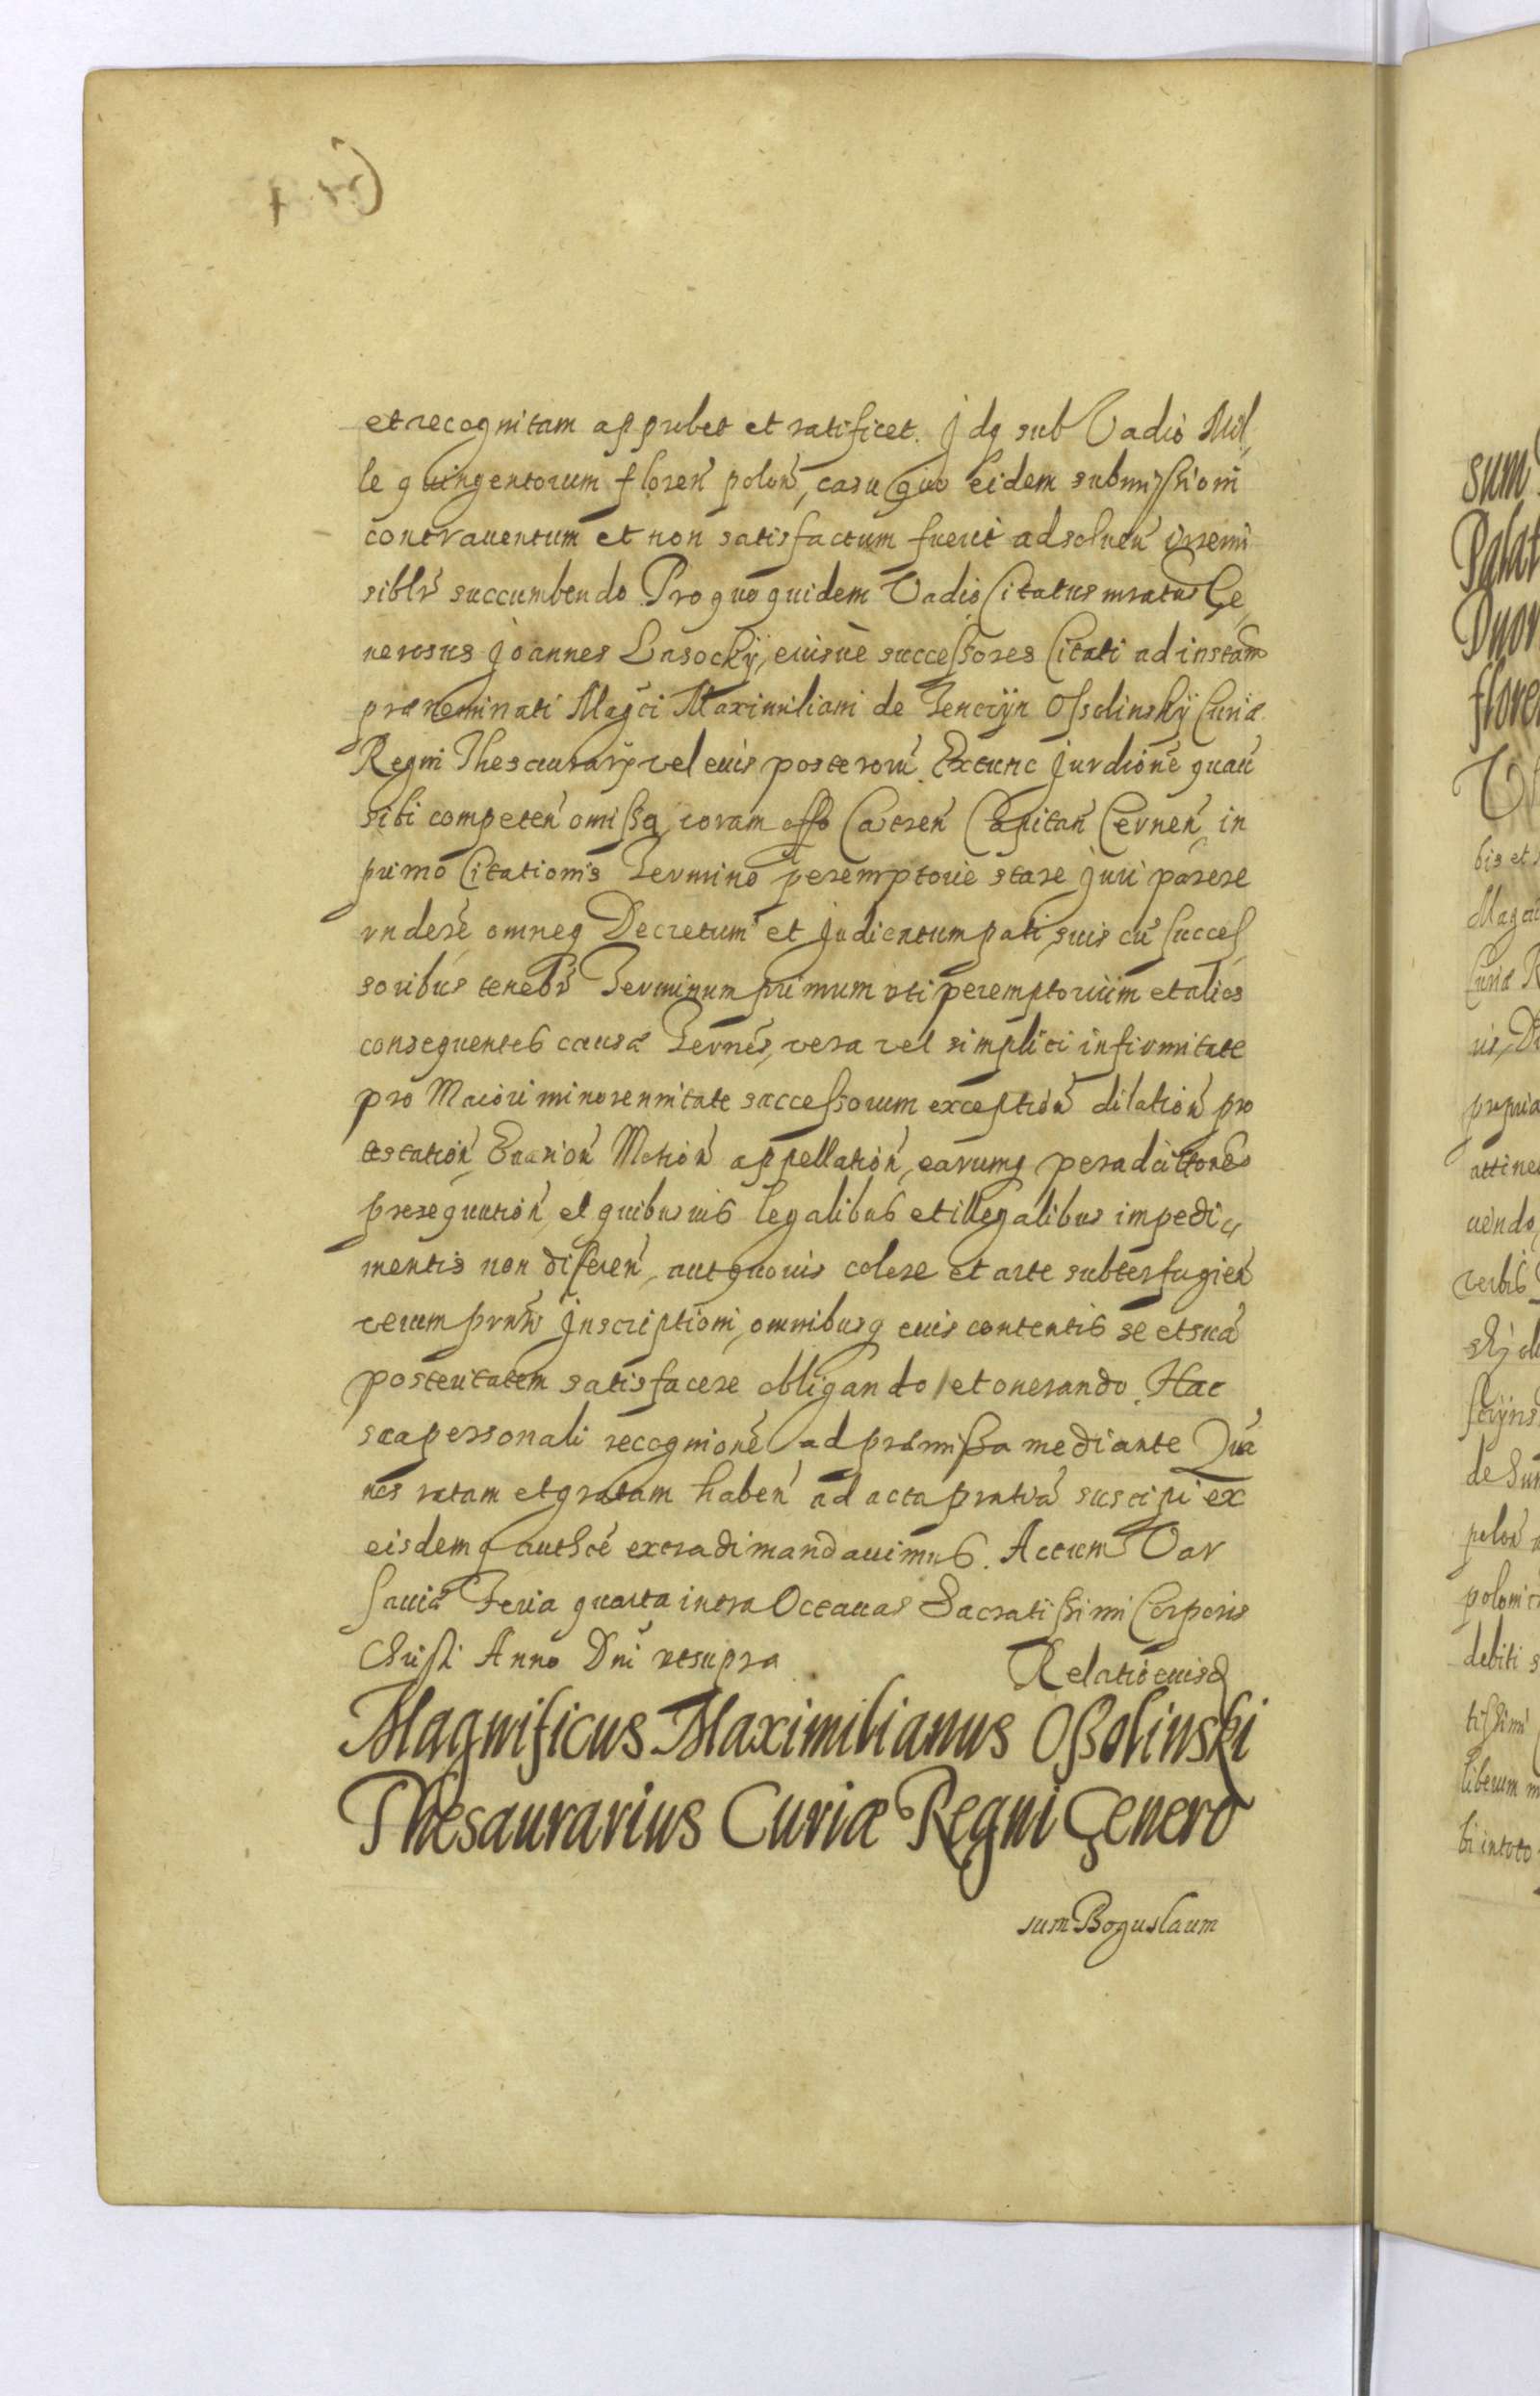 et recognitam approbet et ratificet. Jdq sub Vadio Mil,
le quingentorum floren polon, casu quo eidem submissioni
contrauentum et non satisfactum fuerit adsoluen irremi
siblr succumbendo. Pro quo quidem Vadio Citatus mratus Ge,
nerosus Joannes Lasocky, eiusue successores Citati ad instam
prænominati Magci Maximiliani de Tenczyn Ossolinsky Curiæ
Regni Thesaurarÿ vel euis posterorū. Extunc Jurdione quau
sibi competen omissa, coram offo Castren Capitan Cernen in
primo Citationis Termino peremptorie stare juri parere
rndere omneq Decretum et Judicatum pati, suis cū succes,
soribus tenebr Terminum primum uti peremptorium et alios
consequentes causa Ternes, vera vel simplici infirmitate
pro Maiori minorennitate successorum exception dilation pro
testation Euasion Motion appellation, earumq peradcittones
prosequution, et quibusuis legalibus et illegalibus impedi,
mentis non differen, aut quouis colore et arte subterfugien
verum prnti Inscriptioni, omnibusq euis contentis se et suā
posteritatem satisfacere obligando / et onerando. Hac
sua personali recognione ad præmissa mediante Quā
nos ratam et gratam haben ad acta prntia suscipi ex
eisdemq authce extradi mandauimus. Actum Var
sauiæ Feria quarta intra Octauas Sacratissimi Corporis
Christi Anno Dni ut supra
Relatio euisd
Magnificus Maximilianus Ossolinski
Thesaurarius Curiæ Regni Genero
sum Boguslaum